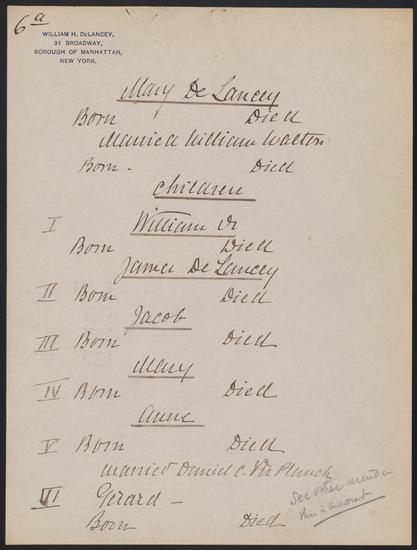 6a
WILLIAM H. DELANCEY,
31 BROADWAY,
BOROUGH OF MANHATTAN,
NEW YORK.
Mary De Lancey
Born Died
Married William Walton
Born - Died
Children
I William Jr
Born Died
James De Lancey
II Born Died
Jacob
III Born Died
Mary
IV Born Died
Anne
V Born Died
married Daniel C. Ver Planck
VI Gerard -
Born Died
See other
this is incorrect